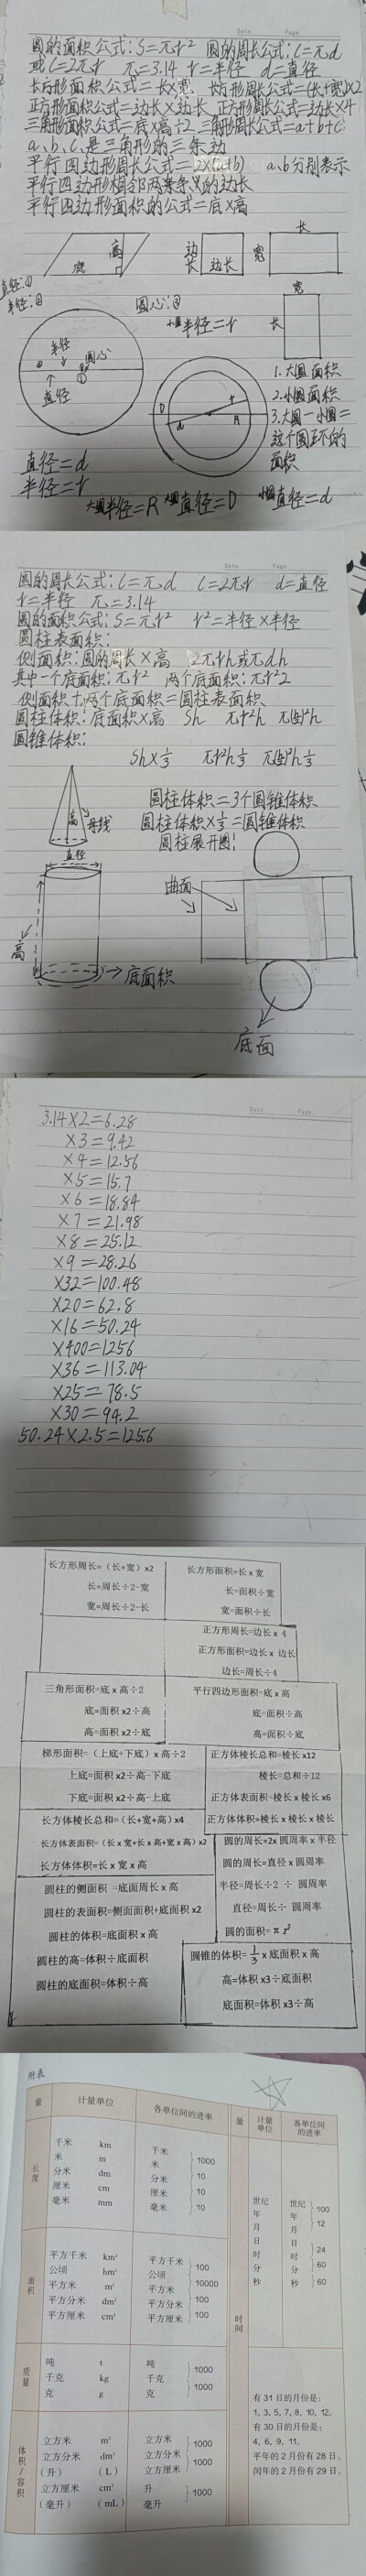 Date Page
圆的面积公式:S=πr² 圆的周长公式:C=πd
或C=2πr π=3.14 r=半径 d=直径
长方形面积公式=长×宽 长方形周长公式=(长+宽)×2
正方形面积公式=边长×边长 正方形周长公式=边长×4
三角形面积公式=底×高÷2 三角形周长公式=a+b+c
a、b、c是三角形的三条边
平行四边形周长公式=2×(a+b) a、b分别表示
平行四边形相邻两条的边长
平行四边形面积的公式=底×高
高
底
边长
边长
长
宽
直径:①
半径:②
圆心:③
小圆半径=r
宽
长
半径
圆心
①
直径
D
d
r
R
1.大圆面积
2.小圆面积
3.大圆-小圆=
这个圆环的
面积
直径=d
半径=r
大圆半径=R 大圆直径=D 小圆直径=d
Date Page
圆的周长公式:C=πd C=2πr d=直径
r=半径 π=3.14
圆的面积公式:S=πr² r²=半径×半径
圆柱表面积:
侧面积:圆的周长×高 2πrh或πdh
其中一个底面积:πr² 两个底面积:πr²2
侧面积+两个底面积=圆柱表面积
圆柱体积:底面积×高 Sh πr²h
圆锥体积:
Sh×⅓ πr²h⅓
高
母线
圆柱体积=3个圆锥体积
圆柱体积×⅓=圆锥体积
圆柱展开图:
直径
高
底面积
曲面
底面
Date Page
3.14×2=6.28
×3=9.42
×4=12.56
×5=15.7
×6=18.84
×7=21.98
×8=25.12
×9=28.26
×32=100.48
×20=62.8
×16=50.24
×400=1256
×36=113.04
×25=78.5
×30=94.2
50.24×2.5=125.6
长方形周长=(长+宽)x2
长=周长÷2-宽
宽=周长÷2-长
长方形面积=长x宽
长=面积÷宽
宽=面积÷长
正方形周长=边长x 4
正方形面积=边长x 边长
边长=周长÷4
三角形面积=底x高÷2
底=面积 x2÷高
高=面积 x2÷底
平行四边形面积=底x高
底=面积÷高
高=面积÷底
梯形面积=(上底+下底)x高÷2
上底=面积 x2÷高-下底
下底=面积 x2÷高-上底
正方体棱长总和=棱长 x12
棱长=总和÷12
正方体表面积=棱长x棱长x6
正方体体积=棱长x棱长x棱长
长方体棱长总和=(长+宽+高)x4
长方体表面积=(长x宽+长x高+宽x高)x2
长方体体积=长x宽x高
圆的周长=2x 圆周率x半径
圆的周长=直径x圆周率
半径=周长÷2 ÷ 圆周率
直径=周长÷ 圆周率
圆的面积=π r²
圆柱的侧面积 =底面周长x高
圆柱的表面积=侧面面积+底面积x2
圆柱的体积=底面积x高
圆柱的高=体积÷底面积
圆柱的底面积=体积÷高
圆锥的体积=⅓x底面积x高
高=体积 x3÷底面积
底面积=体积 x3÷高
附表
量 计量单位 各单位间的进率
长度
千米 km
米 m
分米 dm
厘米 cm
毫米 mm
千米
米
分米
厘米
毫米
1000
10
10
10
面积
平方千米 km²
公顷 hm²
平方米 m²
平方分米 dm²
平方厘米 cm²
平方千米
公顷
平方米
平方分米
平方厘米
100
10000
100
100
质量
吨 t
千克 kg
克 g
吨
千克
克
1000
1000
体积/容积
立方米 m³
立方分米 dm³
(升) (L)
立方厘米 cm³
(毫升) (mL)
立方米
立方分米
立方厘米
升
毫升
1000
1000
1000
量 计量单位 各单位间的进率
时间
世纪
年
月
日
时
分
秒
世纪
年
月
日
时
分
秒
100
12
24
60
60
有31日的月份是:
1, 3, 5, 7, 8, 10, 12。
有30日的月份是:
4, 6, 9, 11。
平年的2月份有28日。
闰年的2月份有29日。